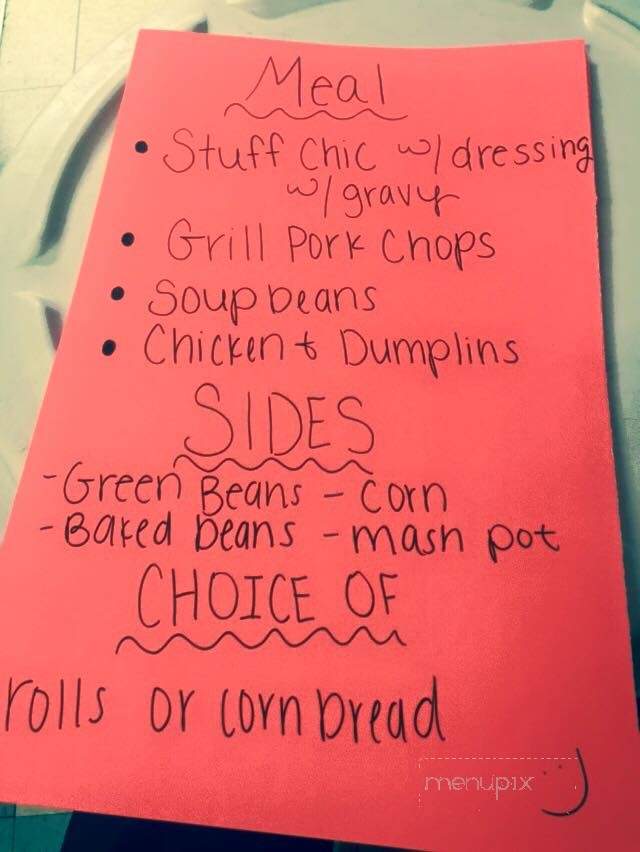 Meal
• Stuff Chic w/ dressing
w/ gravy
• Grill Pork Chops
• Soup beans
• Chicken & Dumplins
SIDES
- Green Beans - Corn
- Baked beans - mash pot
CHOICE OF
rolls or corn bread
menupix